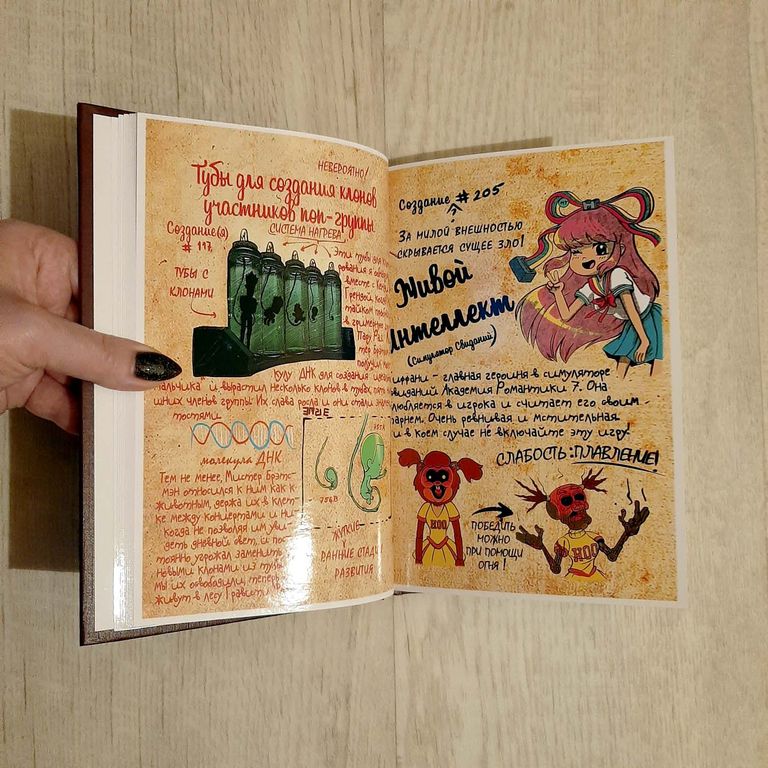 НЕВЕРОЯТНО!
Тубы для создания клонов
участников поп-группы
Создание(я)
# 117
СИСТЕМА НАГРЕВА
ТУБЫ С
КЛОНАМИ
Эти тубы для
рования я
вместе с
Грендой, когда
тайком
в гримерку
ДНК для создания
и вырастил несколько клонов в
членов группы. Их слава росла и они стали
тостями.
молекула ДНК
Тем не менее, Мистер Брэтс-
мэн относился к ним как к
животным, держа их в клет-
ке между концертами и ни-
когда не позволял им уви-
деть дневный свет, и пос-
тоянно угрожал заменить
новыми клонами из тубы
мы их освободили, теперь
живут в лесу Гравити
756В
ЖУТКИЕ
РАННИЕ СТАДИИ
РАЗВИТИЯ
Создание # 205
ЗА МИЛОЙ ВНЕШНОСТЬЮ
СКРЫВАЕТСЯ СУЩЕЕ ЗЛО!
Живой
Интеллект
(Симулятор Свиданий)
иффани - главная героиня в симуляторе
виданий Академия Романтики 7. Она
влюбляется в игрока и считает его своим
парнем. Очень ревнивая и мстительная.
и в коем случае не включайте эту игру.
СЛАБОСТЬ: ПЛАВЛЕНИЕ!
HOO
ПОБЕДИТЬ
МОЖНО
ПРИ ПОМОЩИ
ОГНЯ!
HOO